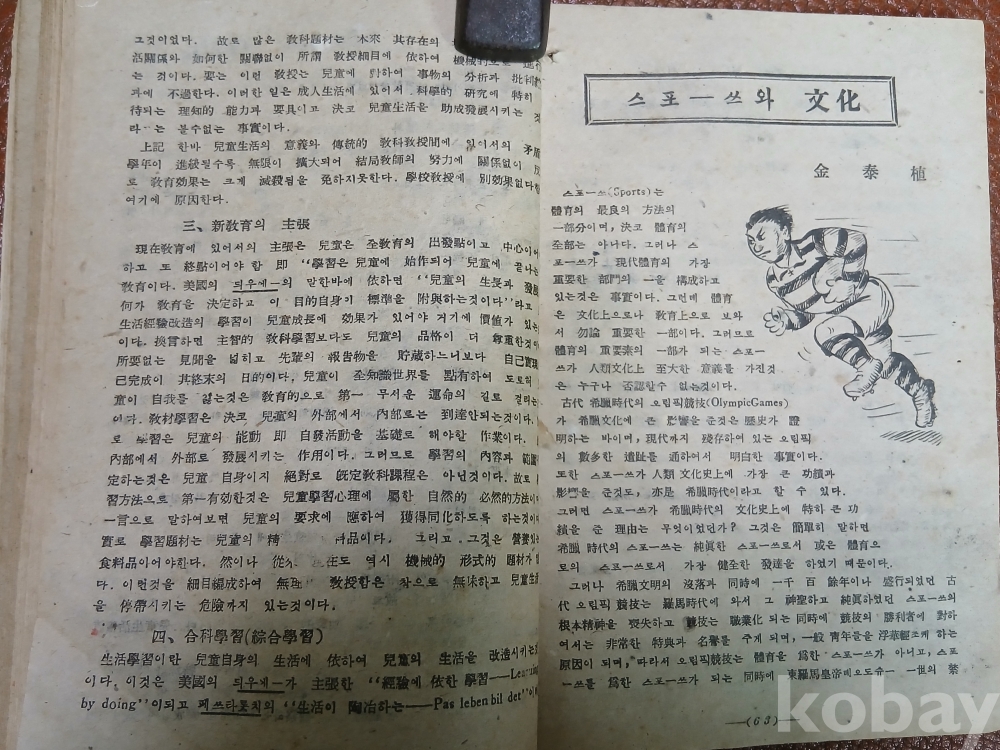 그것이었다. 故로 많은 敎科題材는 本來 其存在의
活關係와 如何한 關聯없이 所謂 敎授細目에 依하여 機械的으로
는 것이다. 要는 이런 敎授는 兒童에 對하여 事物의 分析과 批判
과에 不過한다. 이러한 일은 成人生活에 있어서 科學的 硏究에 特히
待되는 理知的 能力과 要具이고 決코 兒童生活을 助成發展시키는 것
라—는 볼수없는 事實이다.
上記 한바 兒童生活의 意義와 傳統的 敎科敎授間에 있어서의 矛盾
學年이 進級될수록 無限이 擴大되어 結局敎師의 努力에 關係없이
로 敎育効果는 크게 減殺됨을 免하지못한다. 學校敎授에 別効果없다함
여기에 原因한다.
三、新敎育의 主張
現在敎育에 있어서의 主張은 兒童은 全敎育의 出發點이고 中心이어
하고 또 終點이어야 함 即 “學習은 兒童에 始作되어 兒童에 끝나는
敎育이다. 美國의 듸우에—의 말한바에 依하면 “兒童의 生長과 發展
何가 敎育을 決定하고 이 目的自身이 標準을 附與하는것이다”라고
生活經驗改造의 學習이 兒童成長에 効果가 있어야 거기에 價値가 있는
이다. 換言하면 主智的 敎科學習보다도 兒童의 品格이 더 尊重한것이
所要없는 見聞을 넓히고 先輩의 報告物을 貯藏하느니보다 自己實現
己完成이 其終末의 日的이다. 兒童이 全知識世界를 點有하여 도로혀
童이 自我를 잃는것은 敎育的으로 第一 무서운 運命의 길로 걸리는
이다. 敎材學習은 決코 兒童의 外部에서 內部로는 到達안되는것이다.
로 學習은 兒童의 能動 即 自發活動을 基礎로 해야한 作業이다.
內部에서 外部로 發展시키는 作用이다. 그러므로 學習의 內容과 範圍
定하는것은 兒童 自身이지 絕對로 旣定敎科課程은 아닌것이다. 故로
習方法으로 第一有効한것은 兒童學習心理에 屬한 自然的 必然的方法이
一言으로 말하여보면 兒童의 要求에 應하여 獲得同化하도록 하는것이
實로 學習題材는 兒童의 精 料品이다. 그리고 그것은 營養있는
食料品이어야한다. 然이나 從來 現在도 역시 機械的 形式的 題材가
다. 이런것을 細目編成하여 無理 敎授함은 참으로 無味하고 兒童生
을 停帶시키는 危險까지 있는것이다.
四、合科學習(綜合學習)
生活學習이란 兒童自身의 生活에 依하여 兒童의 生活을 改造시키는
이다. 이것은 美國의 듸우에—가 主張한 “經驗에 依한 學習——Learning
by doing”이되고 페쓰타롯치의 “生活이 陶冶하는——Das leben bil det”이
스포—쓰와 文化
金泰植
스포—쓰(Sports)는
體育의 最良의 方法의
一部分이며, 決코 體育의
全部는 아니다. 그러나 스
포—쓰가 現代體育의 가장
重要한 部門의 一을 構成하고
있는것은 事實이다. 그런데 體育
은 文化上으로나 敎育上으로 보와
서 勿論 重要한 一部이다. 그러므로
體育의 重要素의 一部가 되는 스포—
쓰가 人類文化上 至大한 意義를 가진것
은 누구나 否認할수 없는것이다.
古代 希臘時代의 오림픽競技(OlympicGames)
가 希臘文化에 큰 影響을 준것은 歷史가 證
明하는 바이며, 現代까지 殘存하여 있는 오림픽
의 數多한 遺趾를 通하여서 明白한 事實이다.
또한 스포—쓰가 人類 文化史上에 가장 큰 功績과
影響을 준것도, 亦是 希臘時代이라고 할 수 있다.
그러면 스포—쓰가 希臘時代의 文化史上에 特히 큰 功
績을 준 理由는 무엇이었던가? 그것은 簡單히 말하면
希臘 時代의 스포—쓰는 純眞한 스포—쓰로서 或은 體育으
로의 스포—쓰로서 가장 健全한 發達을 하였기 때문이다.
그러나 希臘文明의 沒落과 同時에 一千 百 餘年이나 盛行되었던 古
代 오림픽 競技는 羅馬時代에 와서 그 神聖하고 純眞하였던 스포—쓰의
根本精神을 喪失하고 競技는 職業化 되는 同時에 競技의 勝利者에 對하
여서는 非常한 特典과 名譽를 주게 되며, 一般 靑年들을 浮華輕조케 하는
原因이 되며, 따라서 오림픽競技는 體育을 爲한 스포—쓰가 아니고, 스포
—쓰를 爲한 스포—쓰가 되는 同時에 東羅馬皇帝테오도슈— 一世의 禁
—(63)—
kobay